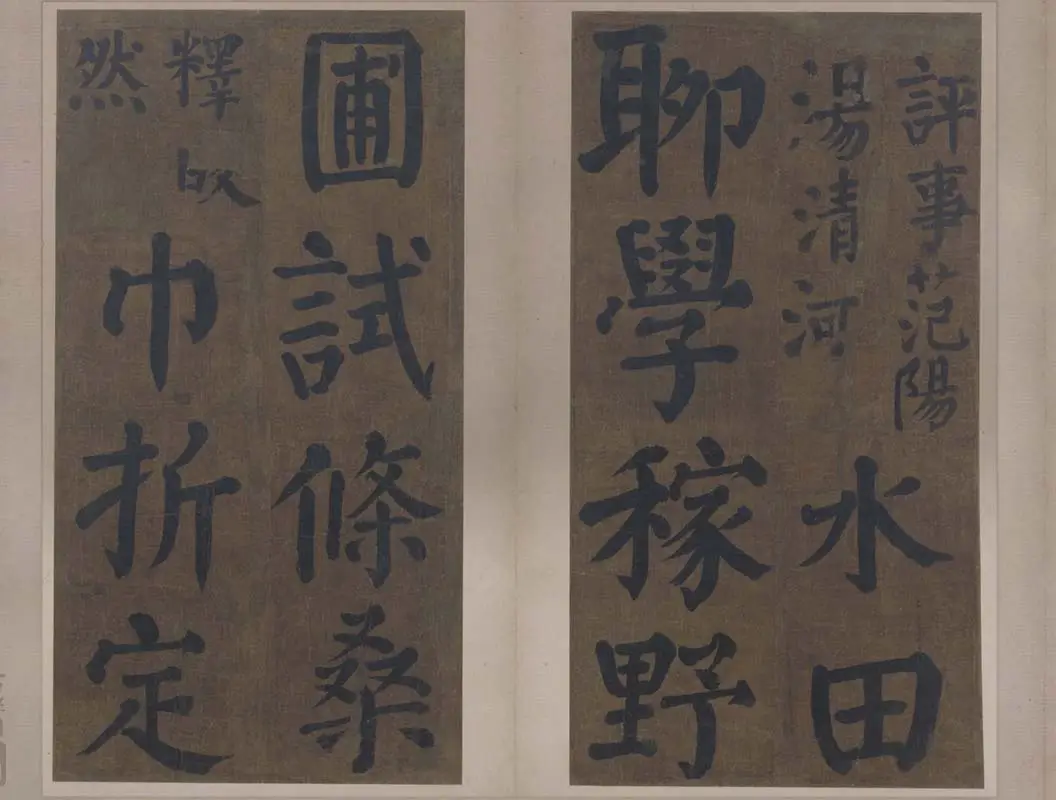 評事范陽
湯清河
水田
聊學稼野
圃試條桑
釋皎
然
巾折定